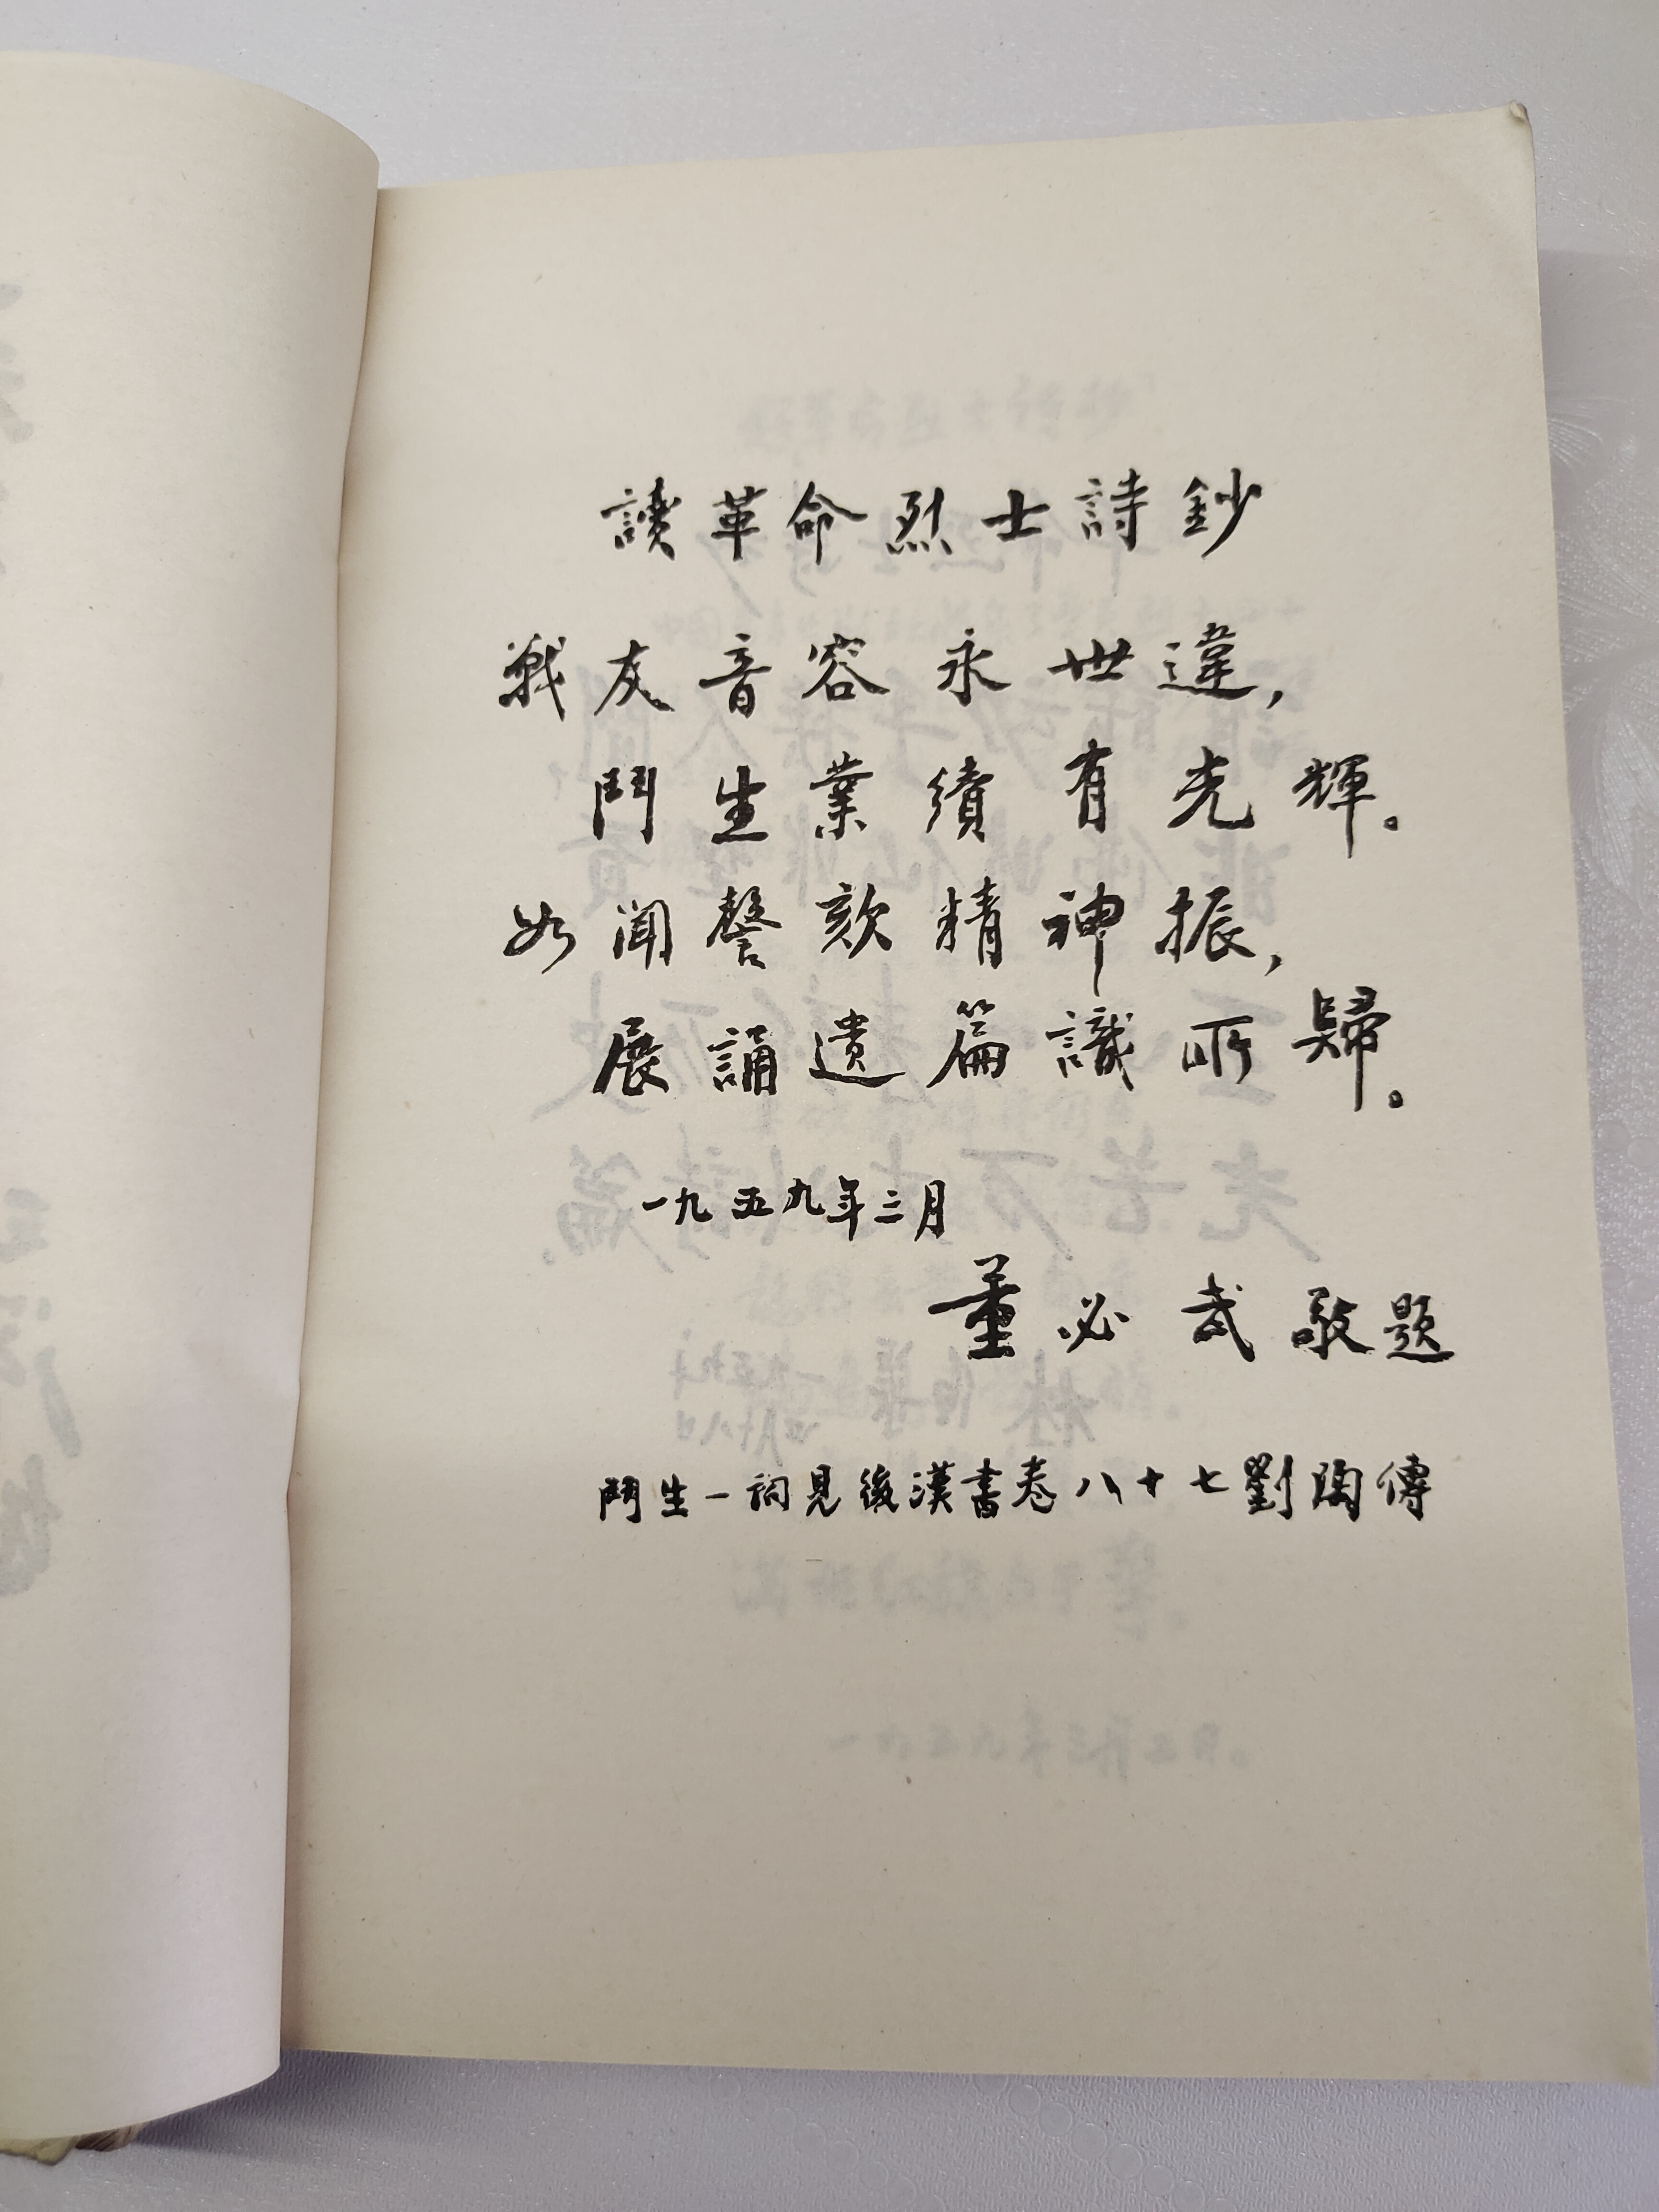 讀革命烈士詩鈔
戰友音容永世違，
鬥生業績有光輝。
如聞謦欬精神振，
展誦遺篇識所歸。
一九五九年三月
董必武敬題
鬥生一詞見後漢書卷八十七劉陶傳